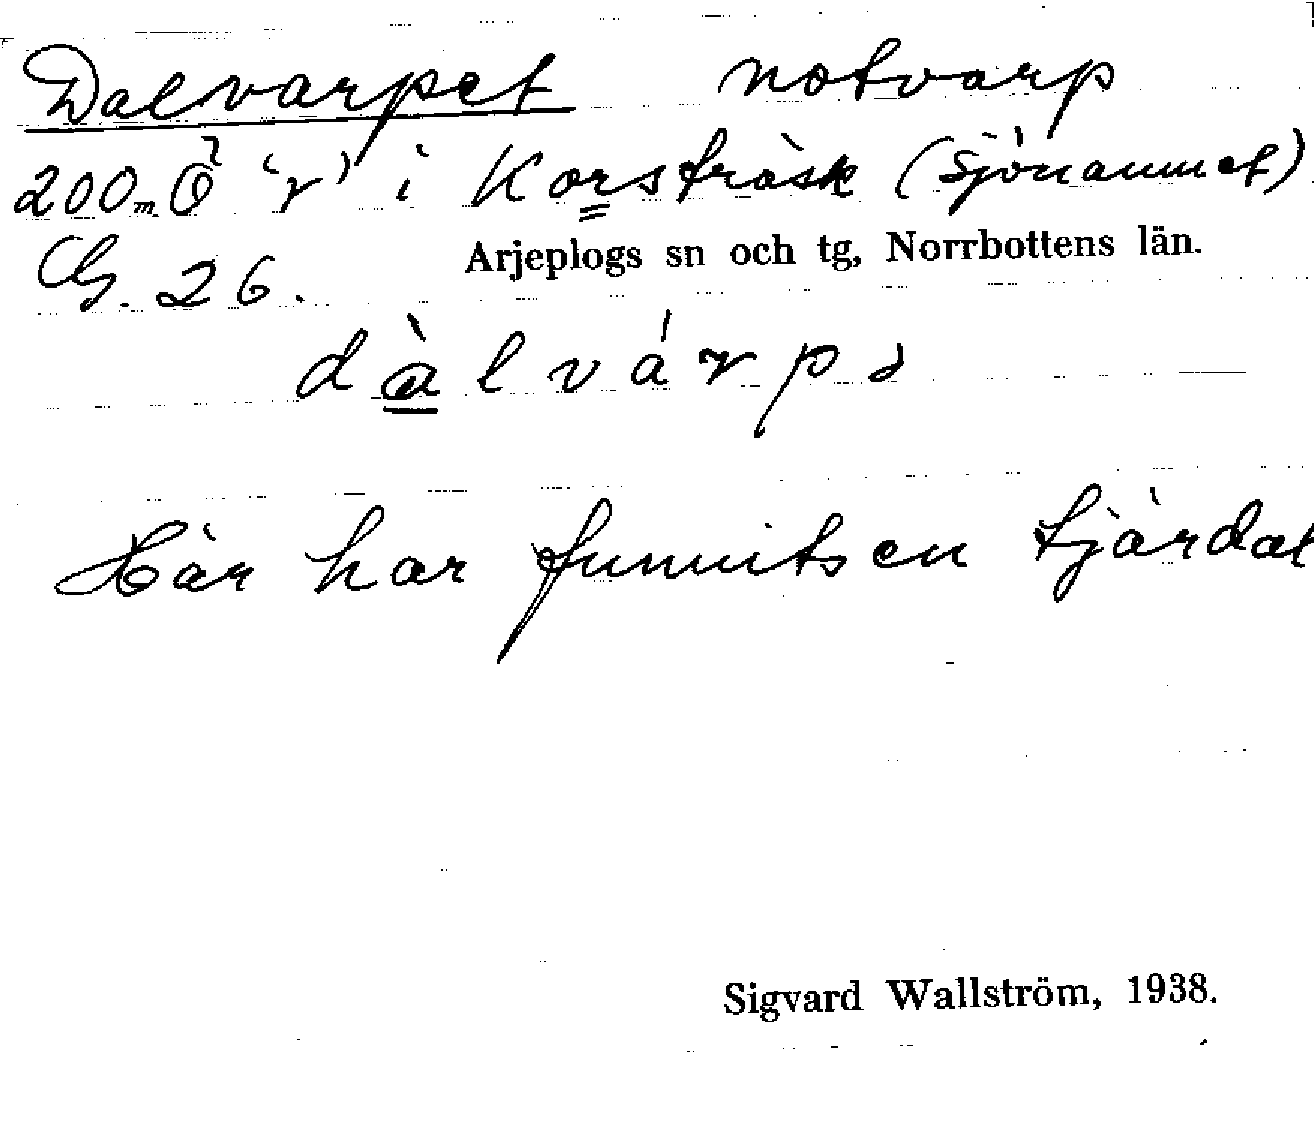 Dalvarpet notvarp
200 m Ö 'r' i Korsträsk (sjönamnet)
Cg. 26.
Arjeplogs sn och tg, Norrbottens län.
dàlvárpə
Här har funnits en tjärdal
Sigvard Wallström, 1938.